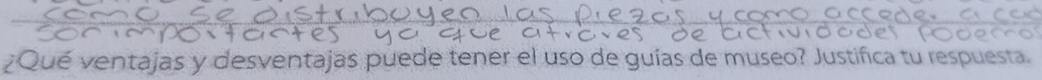 como se distribuyen las piezas y como acceder a cad
son importantes ya que atraves de actividades podemos
¿Qué ventajas y desventajas puede tener el uso de guías de museo? Justifica tu respuesta.